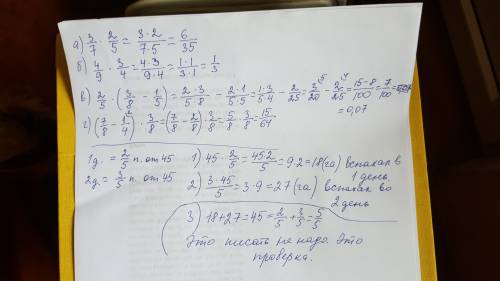 а) 3/7 · 2/5 = 3·2/7·5 = 6/35
б) 4/9 · 3/4 = 4·3/9·4 = 1·1/3·1 = 1/3
в) 2/5 · (3/8 − 1/5) = 2·3/5·8 − 2·1/5·5 = 1·3/5·4 − 2/25 = 3/20 − 2/25 = 15−8/100 = 7/100 =
= 0,07
г) (7/8 − 1/4) · 3/8 = (7/8 − 2/8) · 3/8 = 5/8 · 3/8 = 15/64
1д. = 2/5 п. от 45 1) 45 · 2/5 = 45·2/5 = 9·2 = 18 (га) вспахал в
1 день.
2д. = 3/5 п. от 45 2) 3·45/5 = 3·9 = 27 (га) вспахал во
2 день
3) 18+27=45 = 2/5 + 3/5 = 5/5
Это писать не надо. Это
проверка.